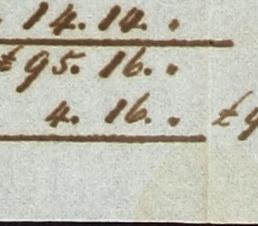 14. 14. "
£95. 16. "
4. 16. " £9